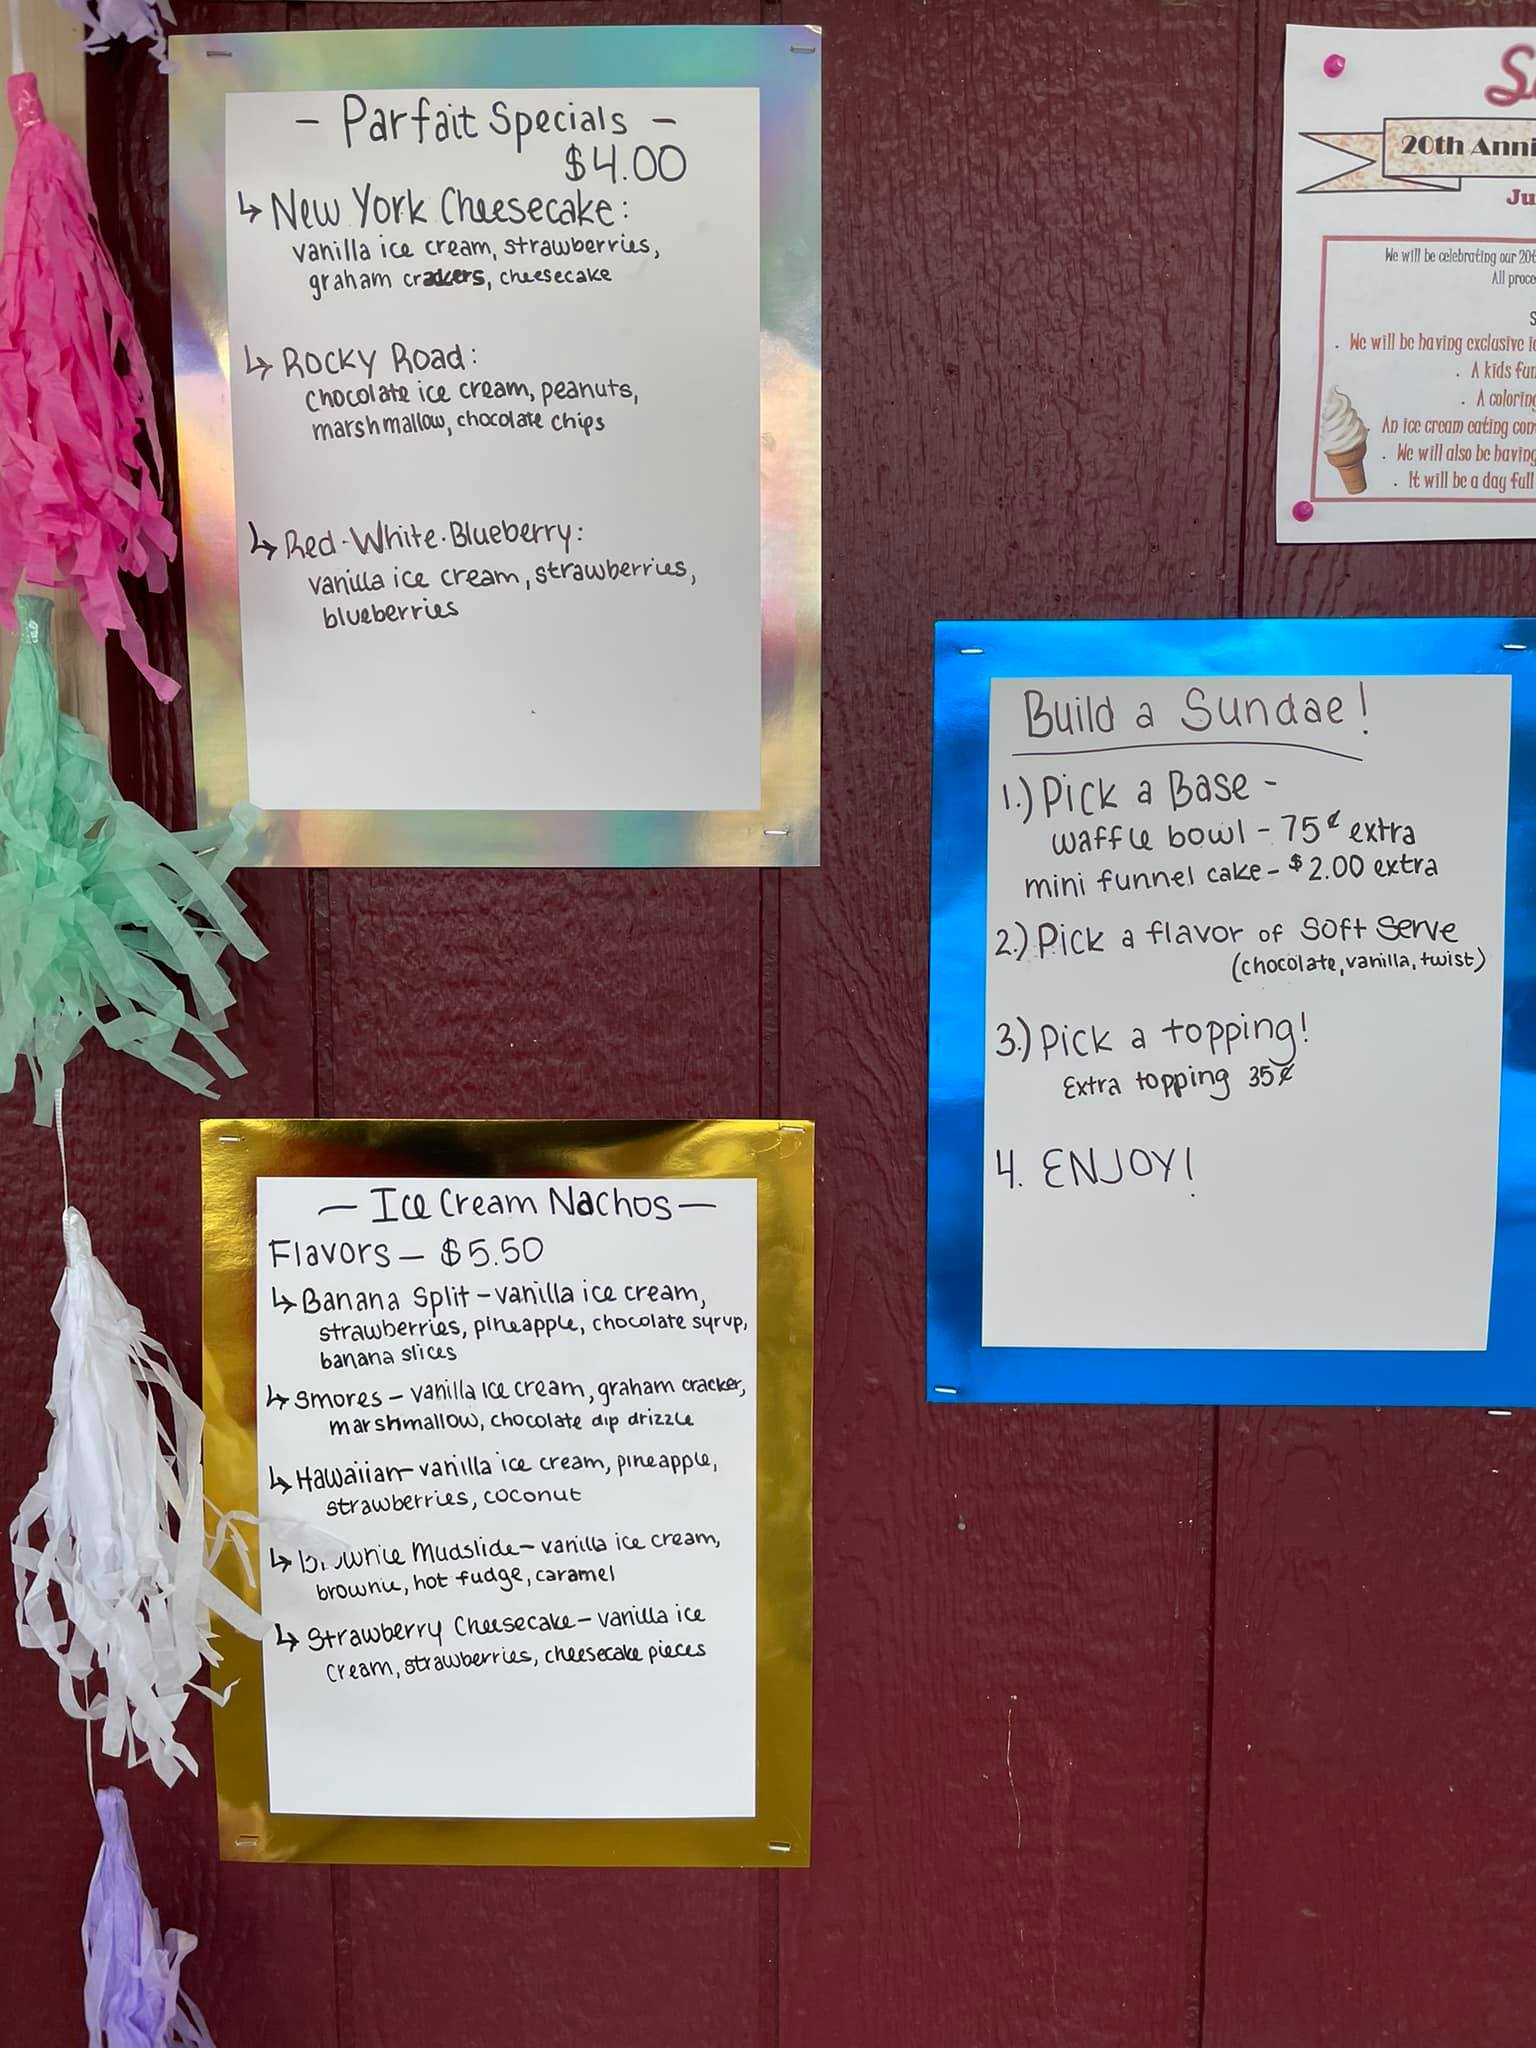 - Parfait Specials -
$4.00
↳ New York Cheesecake:
vanilla ice cream, strawberries,
graham crackers, cheesecake
↳ Rocky Road:
chocolate ice cream, peanuts,
marshmallow, chocolate chips
↳ Red-White-Blueberry:
vanilla ice cream, strawberries,
blueberries
20th Anni
Ju
We will be celebrating our 20t
All proce
S
. We will be having exclusive ic
. A kids fun
. A coloring
. An ice cream eating con
. We will also be having
. It will be a day full
Build a Sundae!
1.) Pick a Base -
waffle bowl - 75¢ extra
mini funnel cake - $2.00 extra
2.) Pick a flavor of soft serve
(chocolate, vanilla, twist)
3.) Pick a topping!
Extra topping 35¢
4. ENJOY!
— Ice Cream Nachos —
Flavors — $5.50
↳ Banana Split - vanilla ice cream,
strawberries, pineapple, chocolate syrup,
banana slices
↳ Smores - vanilla ice cream, graham cracker,
marshmallow, chocolate dip drizzle
↳ Hawaiian - vanilla ice cream, pineapple,
strawberries, coconut
↳ Brownie Mudslide - vanilla ice cream,
brownie, hot fudge, caramel
↳ Strawberry Cheesecake - vanilla ice
cream, strawberries, cheesecake pieces